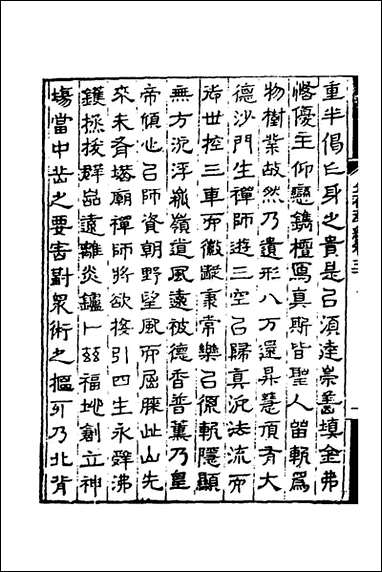 重半偈亡身之貴是㠯須達崇善填金弗
恡優主仰戀鐫檀寫真斯皆聖人留軌為
物樹業故然乃遺形八万還昇慧頂有大
德沙門生禪師遊三空㠯歸真汎法流而
御世控三車而徽蹤秉常樂㠯復軌隱顯
無方沉浮崧嶺道風遠被德香普薰乃皇
帝傾心㠯師資朝野望風而屈膝此山先
來未有塔廟禪師將欲接引四生永辭沸
鑊拯拔群品遠離炎鑪卜茲福地創立神
場當中岳之要害對眾術之樞乃北背